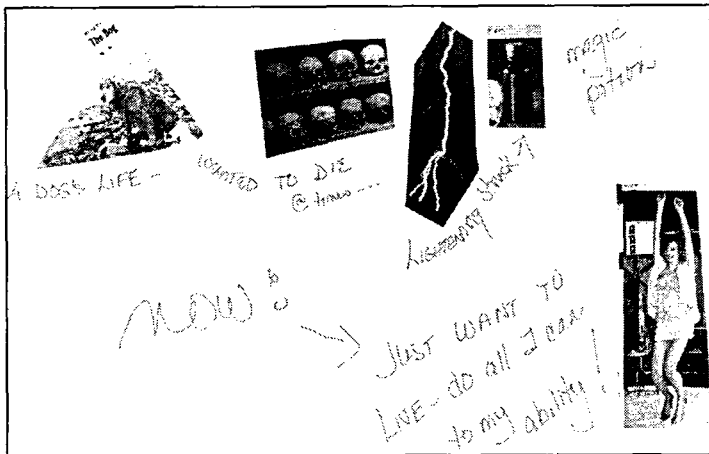 The Dog
A DOG'S LIFE -
WANTED TO DIE
@ times ---
LIGHTENING struck
magic
potion
NOW:
JUST WANT TO
LIVE - do all I can
to my ability!